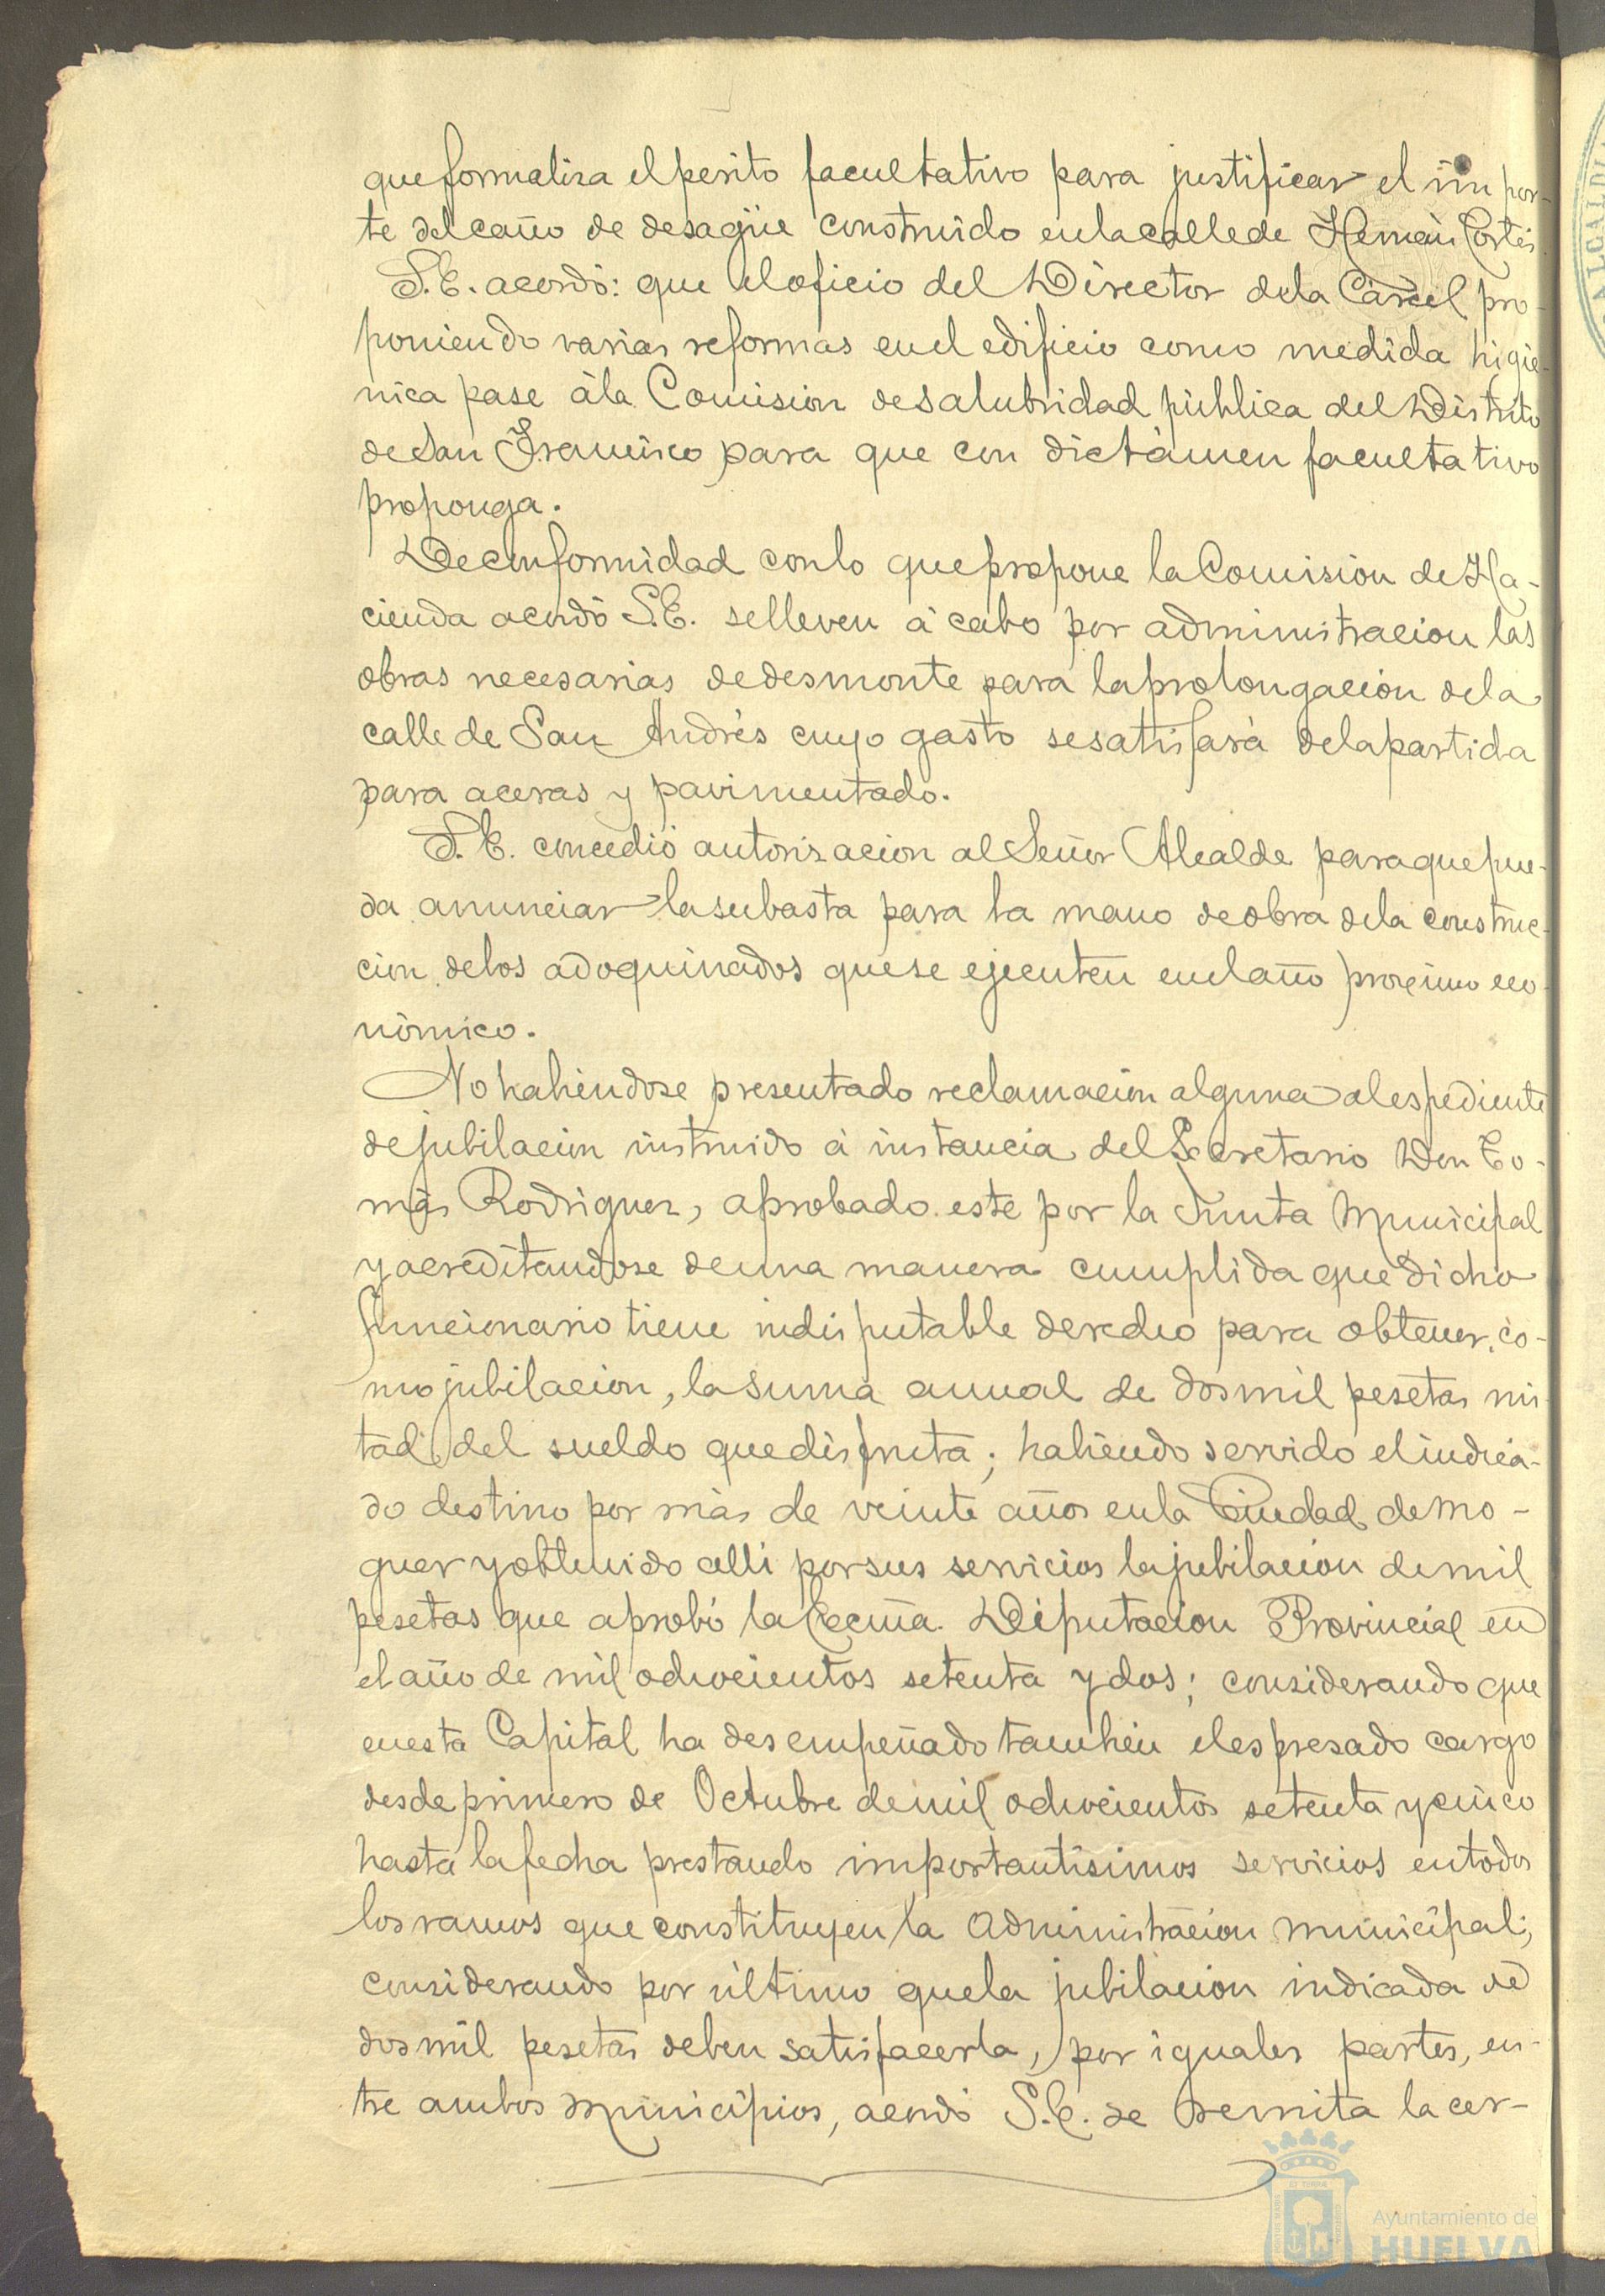 que formaliza el perito facultativo para justificar el impor-
te del caño de desagüe construido en la calle de Hernán Cortés
S.E. acordó: que el oficio del Director de la Cárcel pro-
poniendo varias reformas en el edificio como medida higié-
nica pase á la Comision de salubridad pública del Distrito
de San Francisco para que con dictámen facultativo
proponga.
De conformidad con lo que propone la Comision de Ha-
cienda acordó S.E. se lleven á cabo por administracion las
obras necesarias de desmonte para la prolongacion de la
calle de San Andrés cuyo gasto se satisfará de la partida
para aceras y pavimentado.
S.E. concedió autorizacion al Señor Alcalde para que pue-
da anunciar la subasta para la mano de obra de la construc-
cion de los adoquinados que se ejecuten en el año proximo eco-
nómico.
No habiendose presentado reclamacion alguna al espediente
de jubilacion instruido á instancia del Secretario Don To-
más Rodriguez, aprobado este por la Junta Municipal
y acreditandose de una manera cumplida que dicho
funcionario tiene indisputable derecho para obtener, co-
mo jubilacion, la suma anual de dos mil pesetas mi-
tad del sueldo que disfruta; habiendo servido el indica-
do destino por más de veinte años en la Ciudad de Mo-
guer y obtenido alli por sus servicios la jubilacion de mil
pesetas que aprobó la Excma. Diputacion Provincial en
el año de mil ochocientos setenta y dos; considerando que
en esta Capital ha desempeñado tambien el espresado cargo
desde primero de Octubre de mil ochocientos setenta y cinco
hasta la fecha prestando importantísimos servicios en todos
los ramos que constituyen la administracion municipal;
considerando por último que la jubilacion indicada de
dos mil pesetas deben satisfacerla, por iguales partes, en-
tre ambos municipios, acordó S.E. se remita la cer-
Ayuntamiento de
HUELVA